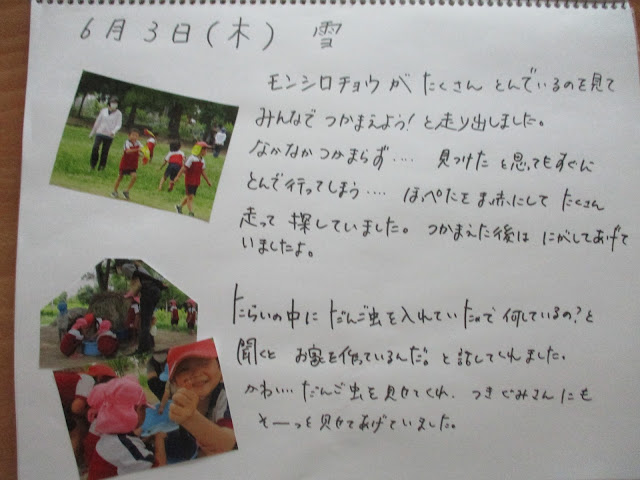 6月3日(木) 雪
モンシロチョウが たくさん とんでいるのを見て
みんなで つかまえよう! と走り出しました。
なかなかつかまらず‥‥ 見つけた と思ってもすぐに
とんで行ってしまう‥‥ ほっぺたをまっ赤にして たくさん
走って 探していました。 つかまえた後は にがしてあげて
いましたよ。
たらいの中に だんご虫を入れていたので 何しているの?と
聞くと お家を作っているんだ。と話してくれました。
かわいい だんご虫を 見せてくれ、 つきぐみさんにも
そーっと 見せてあげていました。